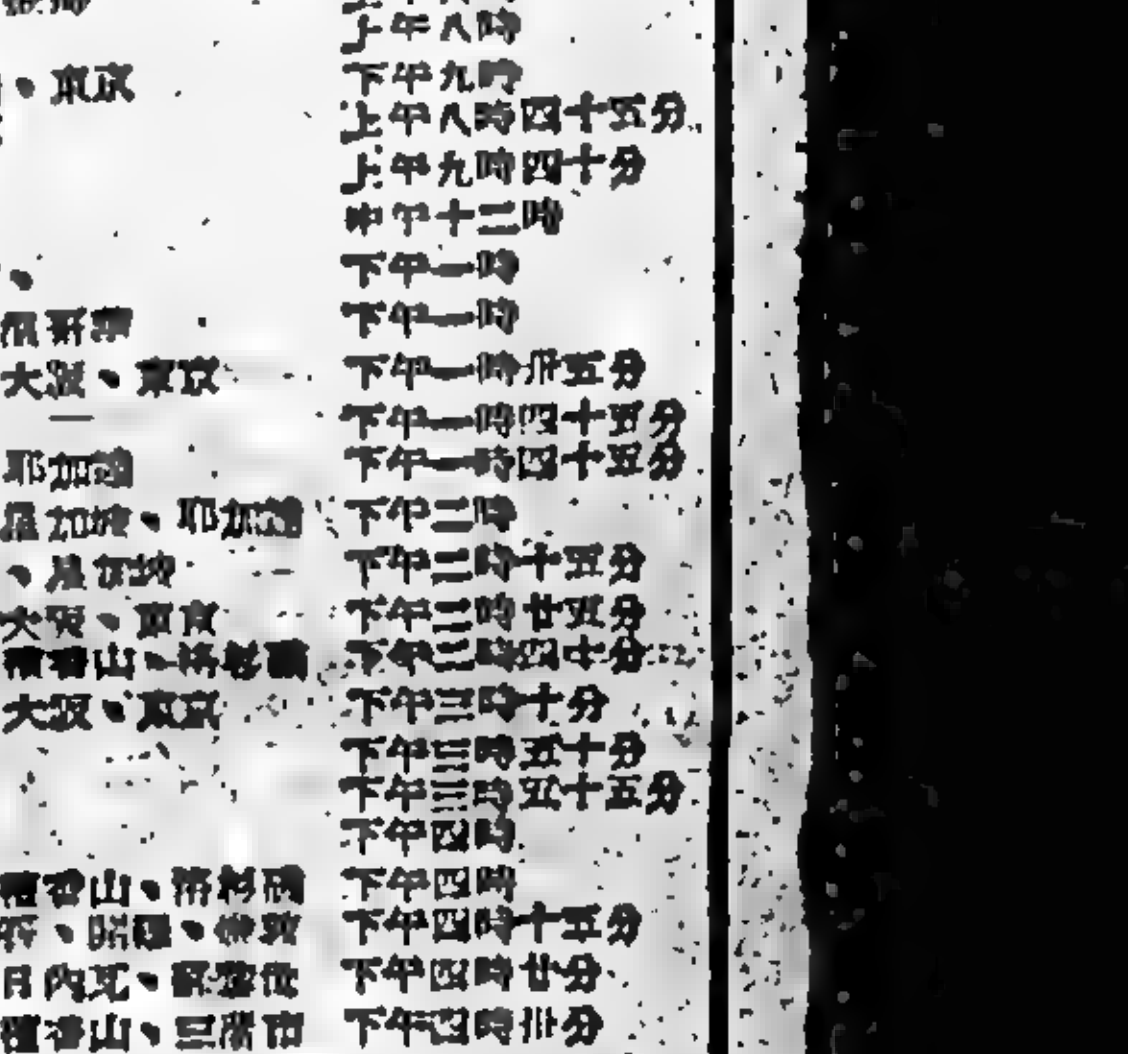 上午八時
、東京 下午九時
上午八時四十五分
上午九時四十分
中午十二時
、 下午一時
下午一時
大阪、東京 下午一時卅五分
下午一時四十五分
耶加達 下午一時四十五分
星加坡、耶加達 下午二時
、星加坡 下午二時十五分
大阪、東京 下午二時廿五分
檀香山、洛杉磯 下午二時四十分
大阪、東京 下午三時十分
下午三時五十分
下午三時五十五分
下午四時
檀香山、洛杉磯 下午四時
下午四時十五分
日內瓦、蘇黎世 下午四時廿分
檀香山、三藩市 下午四時卅分